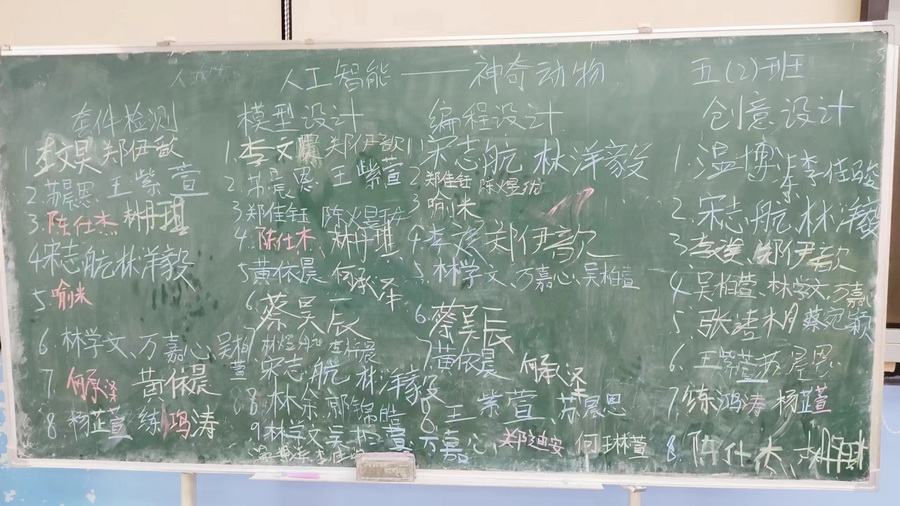 人工智能——神奇动物 五(2)班
套件检测
1.李文昊 郑伊歆
2.苏晨恩 王紫萱
3.陈仕杰 林冉琪
4.宋志航 林洋毅
5.喻米
6.林学文、万嘉心、吴柏萱
7.何承泽 黄依晨
8.杨芷萱 练鸿涛
模型设计
1.李文 郑伊歆
2.苏晨恩 王紫萱
3.郑佳钰 陈火
4.陈仕杰 林冉琪
5.黄依晨 何承泽
6.蔡昊辰
7.
宋志航 林洋毅
8.林
9.林学文
编程设计
1.宋志航 林洋毅
2.郑佳钰
3.喻米
4.李文 郑伊歆
5.林学文、万嘉心、吴柏萱
6.蔡昊辰
7.黄依晨 何承泽
8.王紫萱、苏晨恩
创意设计
1.温博 李佳骏
2.宋志航 林洋毅
3.郑伊歆
4.吴柏萱、林学文、万嘉心
5.张 蔡 颖
6.王紫萱 苏晨恩
7.练鸿涛 杨芷萱
8.陈仕杰、